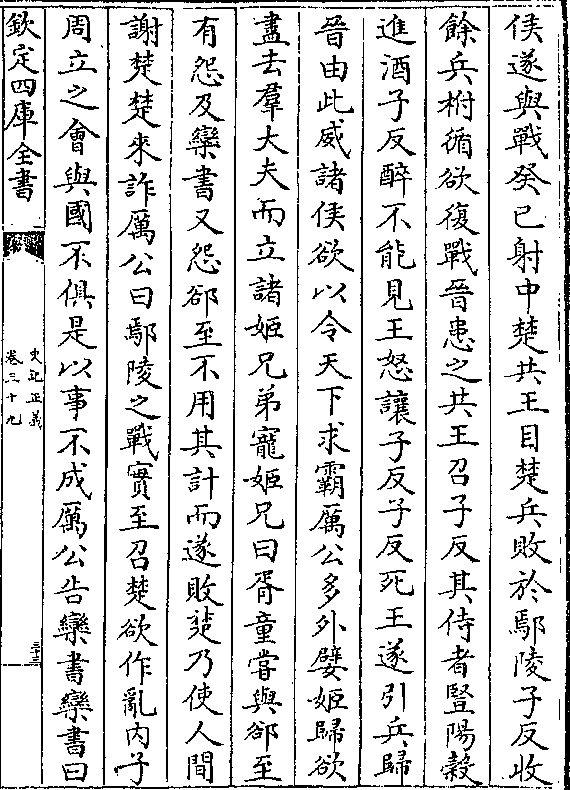 侯遂與戰癸巳射中楚共王目楚兵敗於鄢陵子反收
餘兵柎循欲復戰晉患之共王召子反其侍者豎陽穀
進酒子反醉不能見王怒讓子反子反死王遂引兵歸
晉由此威諸侯欲以令天下求霸厲公多外嬖姬歸欲
盡去羣大夫而立諸姬兄弟寵姬兄曰胥童嘗與郤至
有怨及欒書又怨郤至不用其計而遂敗楚乃使人間
謝楚楚來詐厲公曰鄢陵之戰實至召楚欲作亂內子
周立之會與國不俱是以事不成厲公告欒書欒書曰
欽定四庫全書
史記正義
卷三十九
三十三